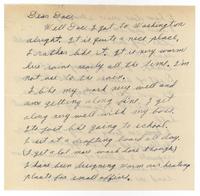 Dear Doc:
Well Doc I got to Washington
alright. It is quite a nice place,
I rather like it. It is very warm
here now nearly all the time. I'm
not use to the
I like my work very well and
am getting along fine. I get
along very well with my
Its just like going to school.
I sit at a drafting board all day.
(I get a lot more work done though)
I have been designing warm air heating
plants for small offices.